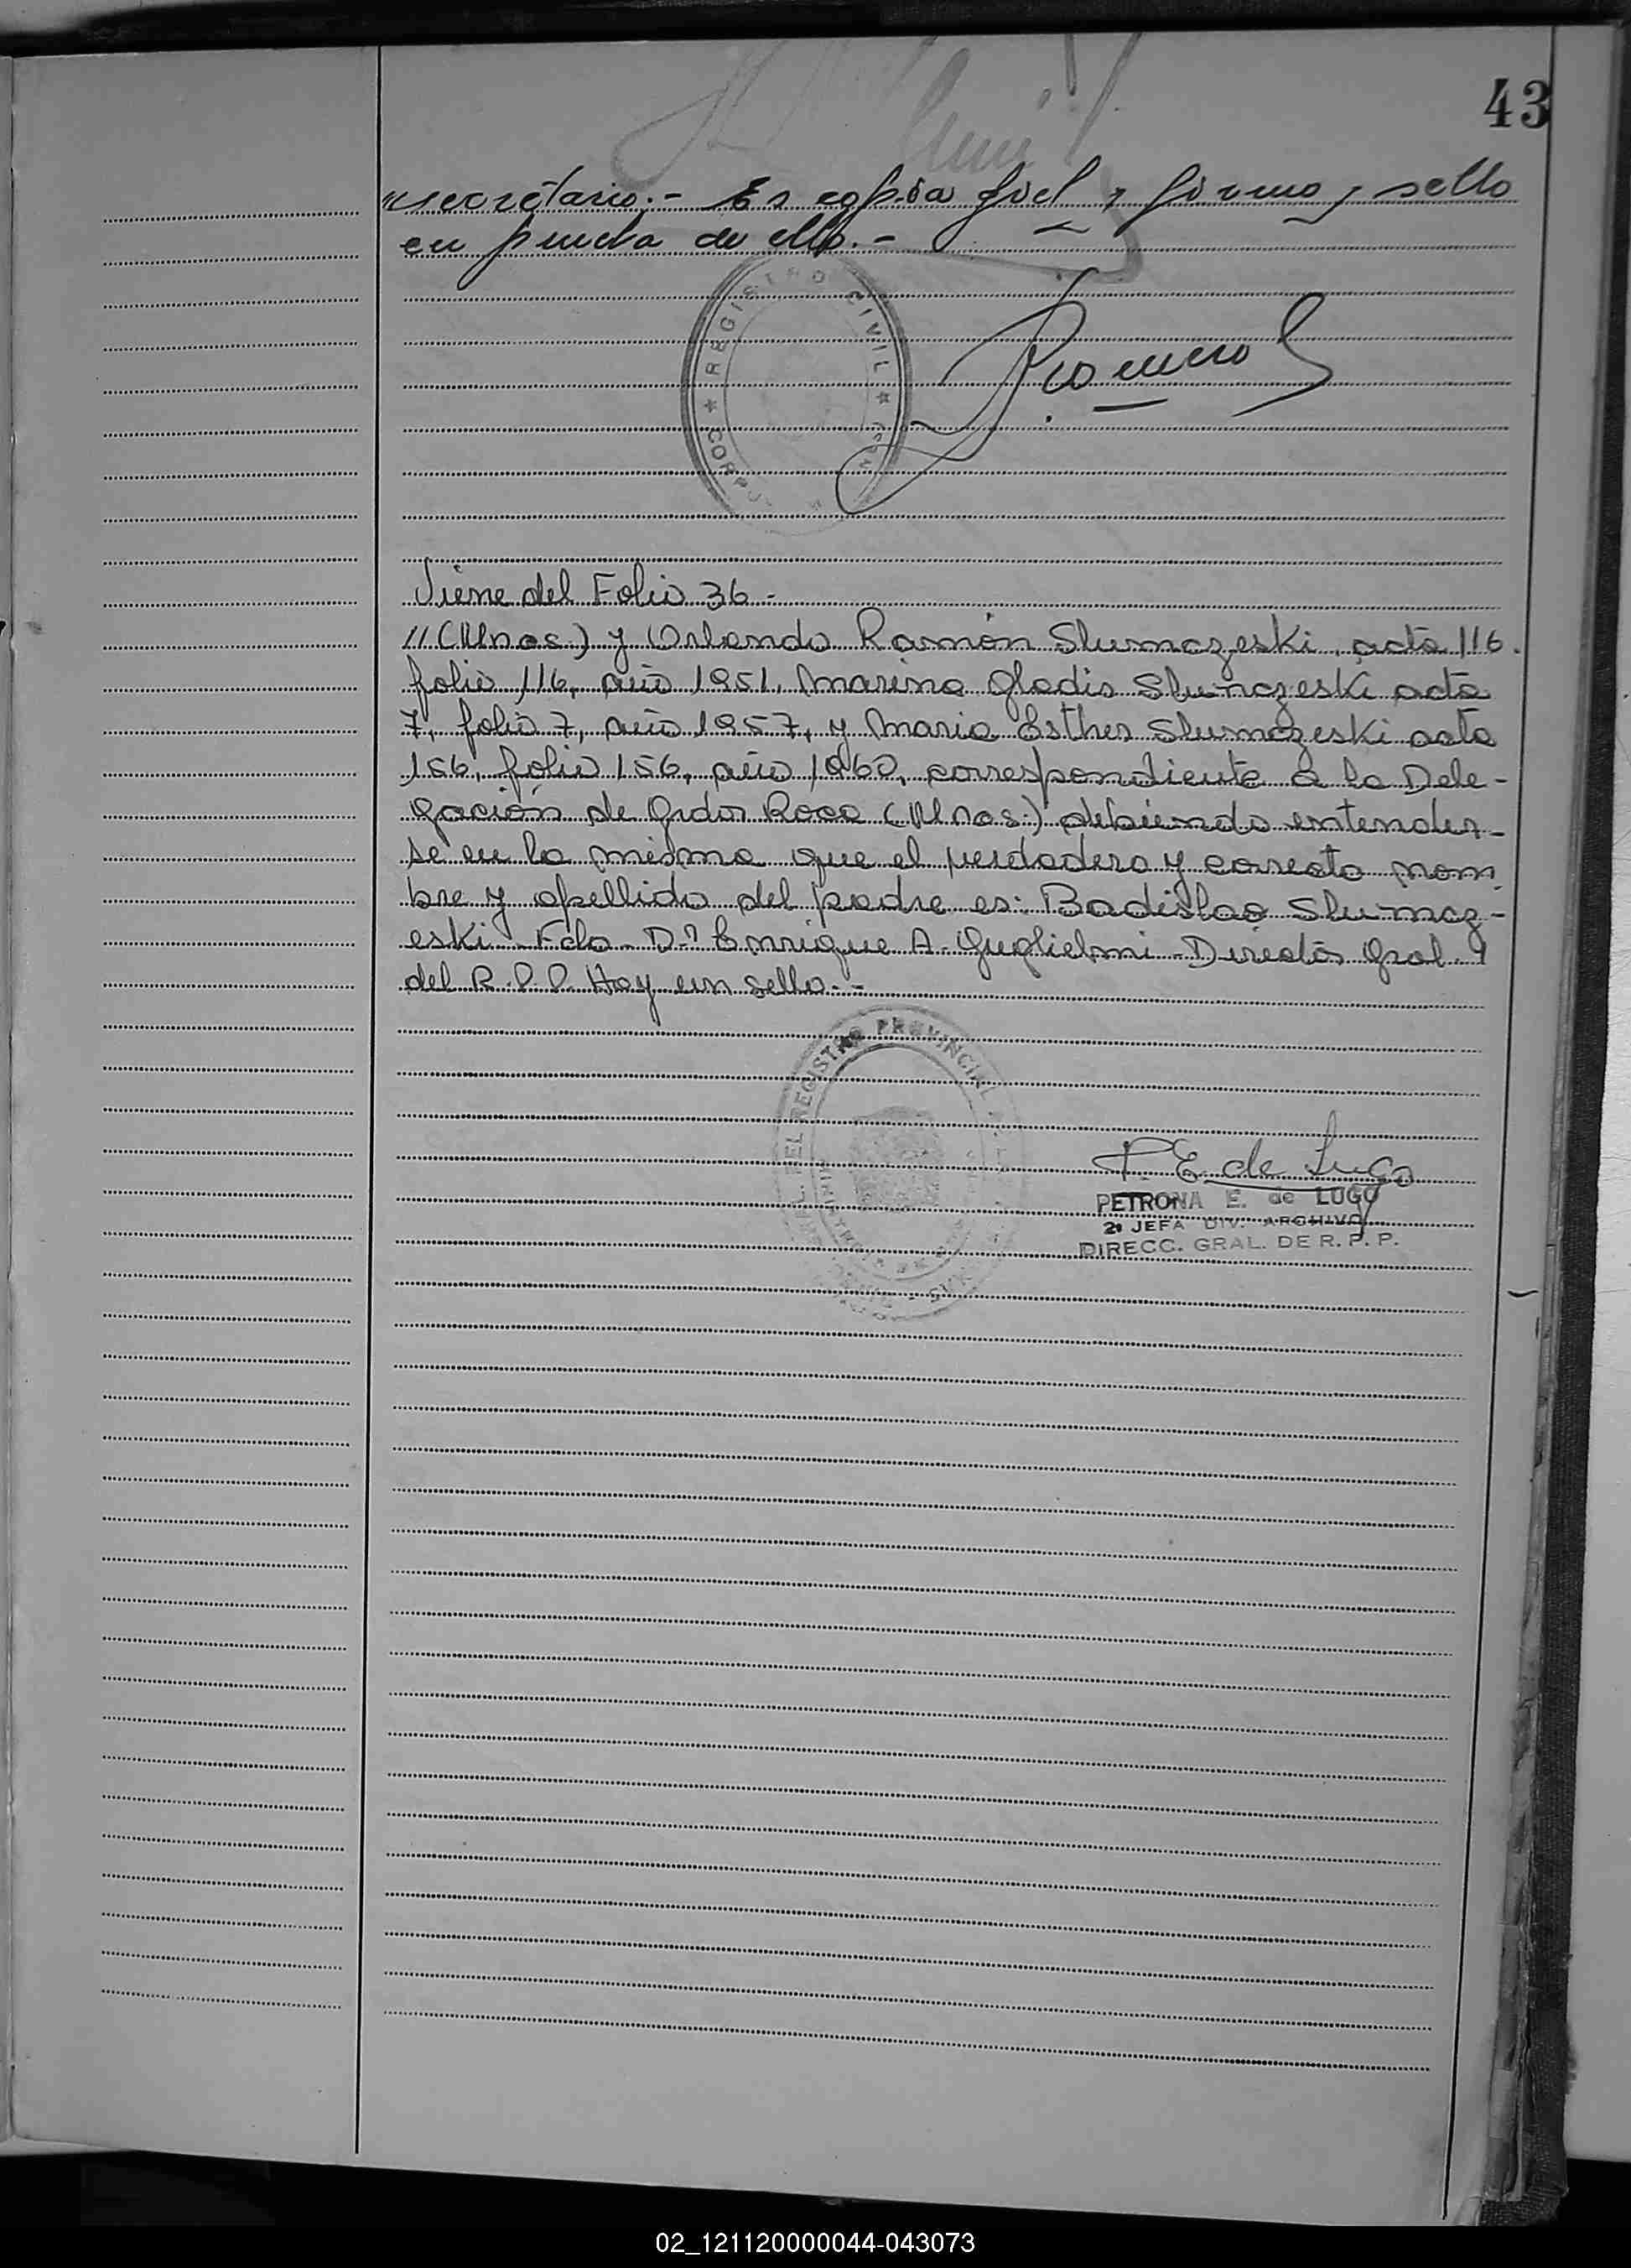 43
"secretario.- Es copia fiel, firmo y sello
en prueba de ello.-
REGISTRO CIVIL
CORPUS
Romero
Viene del Folio 36-
"(Mnes.) y Orlando Ramón Slumczeski, acta 116
folio 116, año 1951, Marina Gladis Slumczeski acta
7, folio 7, año 1957, y Maria Esther Slumczeski acta
156, folio 156, año 1960, correspondiente a la Dele-
gación de Gdor Roca (Mnes.) debiendo entender-
se en la misma que el verdadero y correcto nom
bre y apellido del padre es: Badislao Slumcz-
eski Fdo- Dn Enrique A. Guglielmi - Director Gral
del R.P.P. Hay un sello.-
DEL REGISTRO PROVINCIAL
P E. de Lugo
PETRONA E. de LUGO
2ª JEFA DIV. ARCHIVO
DIRECC. GRAL. DE R. P. P.
02_121120000044-043073